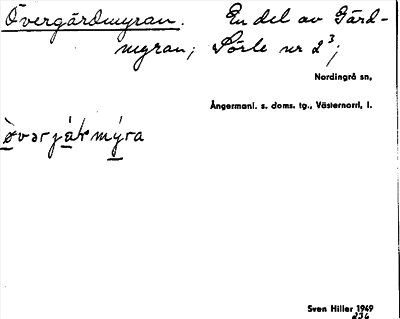 Övergärdmyran. En del av Gärd-
myran; Sörle nr 2³;
Nordingrå sn,
Ångermanl. s. doms. tg., Västernorrl. l.
Sven Hiller 1949
236